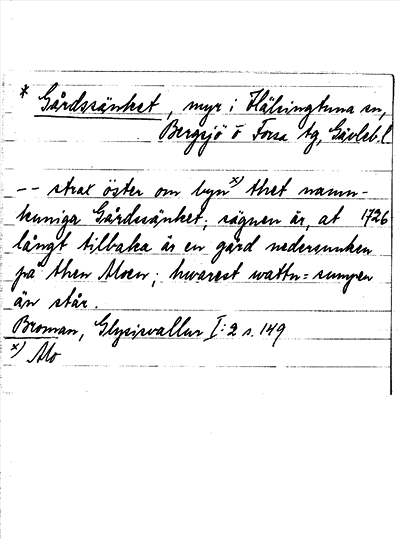 * Gårdssänket, myr i Hälsingtuna sn,
Bergsjö o Forsa tg, Gävleb. l
-- strax öster om byn x) thet namn-
kuniga Gårdssänket; sägnen är, at 1726
långt tilbaka är en gård nedersunken
på then Moen; hwarest wattu=sumpen
än står.
Broman, Glysisvallur I:2 s. 149
x) Mo